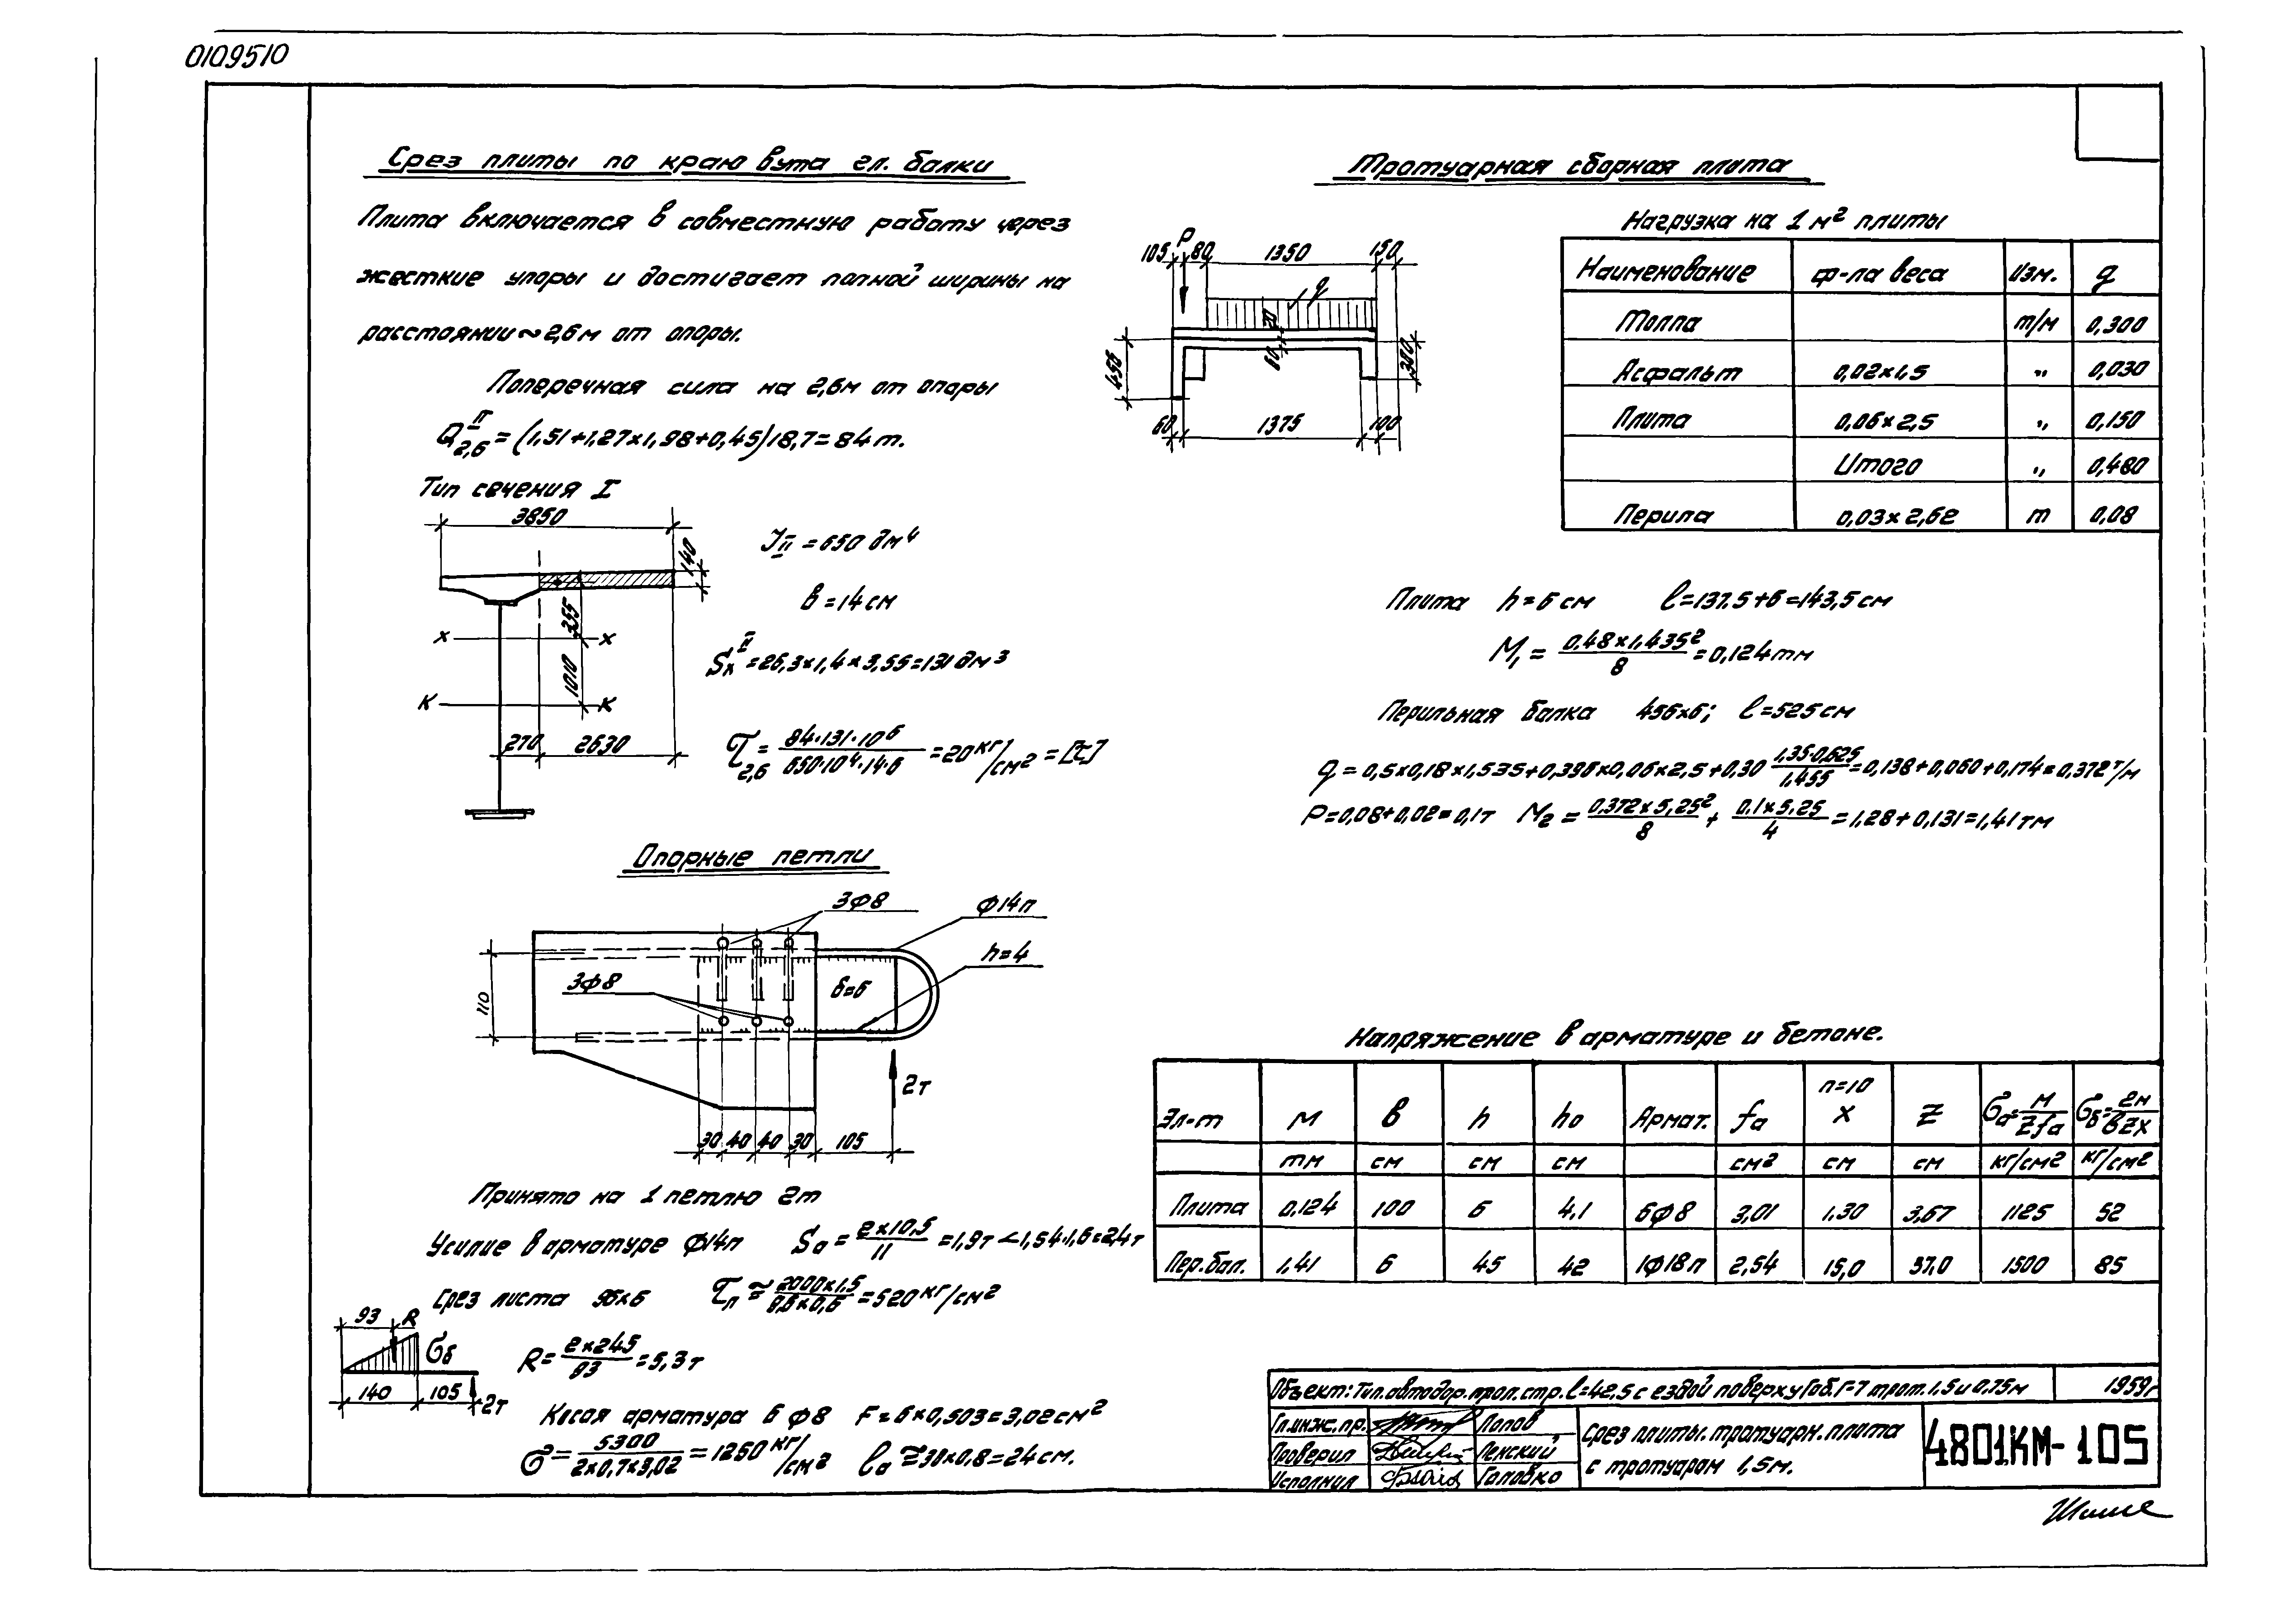 0109510
Срез плиты по краю вута гл. балки
Плита включается в совместную работу через
жесткие упоры и достигает полной ширины на
расстоянии ~ 2,6 м от опоры.
Поперечная сила на 2,6м от опоры
Q II 2,6 = (1,51+1,27×1,98+0,45)18,7=84т.
Тип сечения I
3850
140
355
1010
x x
К К
270 2630
JII = 650 дм⁴
в = 14 см
Sx II = 26,3×1,4×3,55=131 дм³
τ2,6 = 84·131·10⁶ / 650·10⁴·14·6 = 20 кг/см² = [τ]
Опорные петли
3ф8
ф14п
h=4
3ф8
δ=6
110
2т
30 40 40 30 105
Принято на 1 петлю 2т
Усилие в арматуре ф14п Sa = 2×10,5 / 11 = 1,9т < 1,54·1,6=2,4т
Срез листа 96×6 τл ≈ 2000×1,5 / 9,6×0,6 = 520 кг/см²
93 R
σб
140 105
2т
R = 2×245 / 93 = 5,3т
Косая арматура 6 ф8 F = 6×0,503=3,02см²
σ = 5300 / 2×0,7×3,02 = 1250 кг/см² la ≅ 30×0,8=24см.
Тротуарная сборная плита
P
105 80 1350 150
q
20
60
456
380
60 1375 100
Нагрузка на 1 м² плиты
Наименование ф-ла веса Изм. q
Толпа т/м 0,300
Асфальт 0,02×1,5 " 0,030
Плита 0,06×2,5 " 0,150
Итого " 0,480
Перила 0,03×2,62 т 0,08
Плита h=6 см l=137,5+6=143,5 см
M1 = 0,48×1,435² / 8 = 0,124тм
Перильная балка 456×6; l=525 см
q = 0,5×0,18×1,535+0,396×0,06×2,5+0,30 1,35·0,625 / 1,455 = 0,138+0,060+0,174=0,372 т/м
P=0,08+0,02=0,1т M2 = 0,372×5,25² / 8 + 0,1×5,25 / 4 = 1,28+0,131=1,41 тм
Напряжение в арматуре и бетоне.
Эл-т M в h h0 Армат. fa n=10 x z σа=M/zfa σб=2м/вzx
тм см см см см² см см кг/см² кг/см²
Плита 0,124 100 6 4,1 6ф8 3,01 1,30 3,67 1125 52
Пер.бал. 1,41 6 45 42 1ф18п 2,54 15,0 37,0 1500 85
Объект: Тип.автодор.прол.стр. l=42,5 с ездой поверху Габ.Г-7 трот. 1,5 и 0,75м 1959г
Гл.инж.пр. Попов
Проверил Ленский
Исполнил Головко
Срез плиты. тротуарн. плита
с тротуаром 1,5м.
4801КМ-105